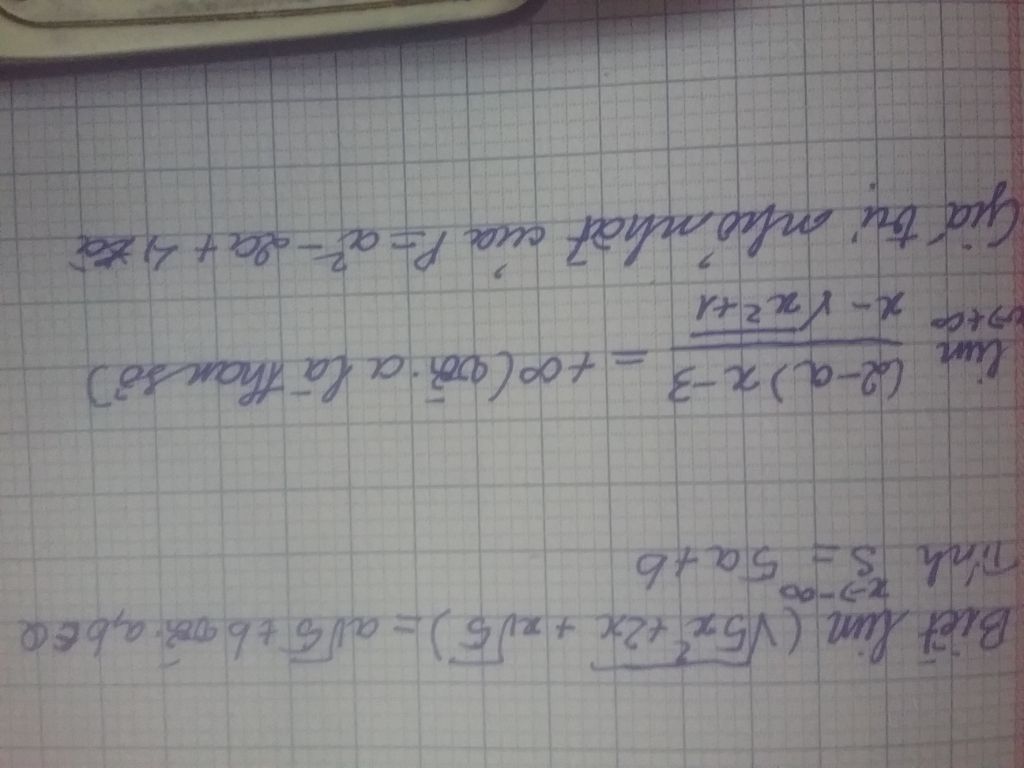 Biết lim (√5x²+2x + x√5) = a√5 + b với a,b ∈ Q
x→-∞
Tính S = 5a+b
lim (2-a)x-3 / x-√x²+1 = +∞ (với a là tham số)
x→+∞
Giá trị nhỏ nhất của P=a²-2a+4 là